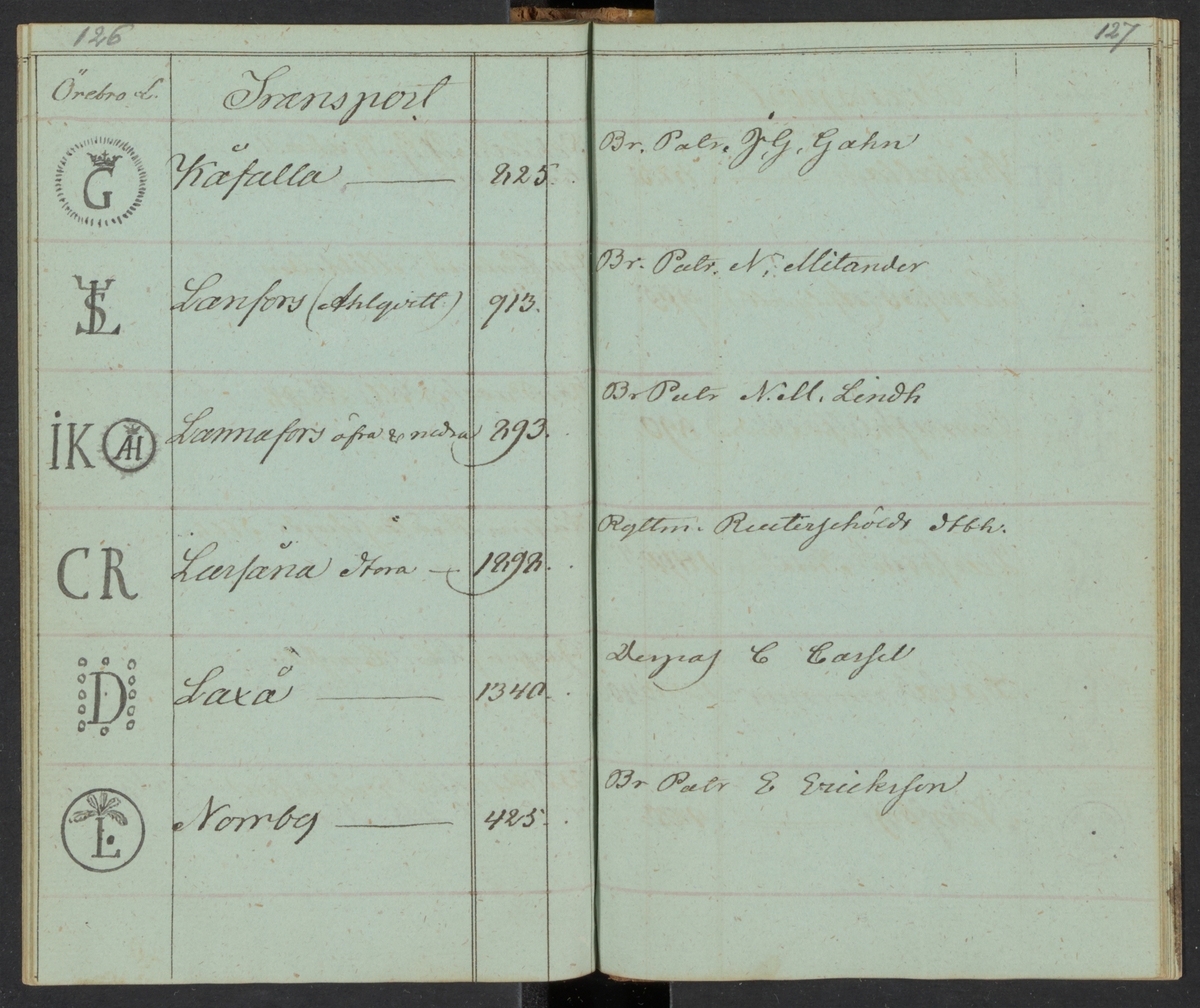 126
127
Örebro L. Transport
G Kåfalla 825. Br. Patr. J. G. Gahn
Lanfors (Ahlqvitt.) 913. Br. Patr. N. Mitander
İK AH Lannafors öfra & nedra 893. Br Patr N. M. Lindh
CR Larsåna Stora 1898. Rgltm. Reuterschöldt Stbh.
D Laxå 1340. C Cassel
L Norrbg 425. Br Patr E Ericksson